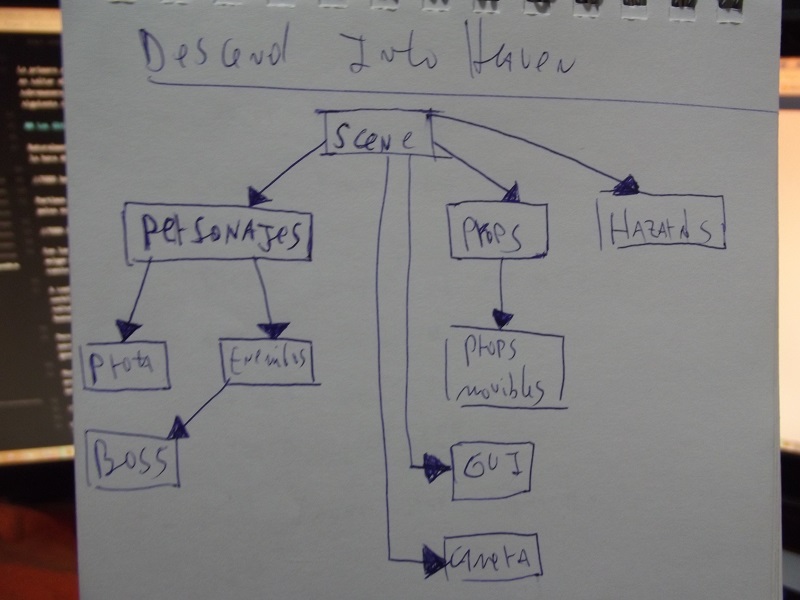 Descend Into Haven
Scene
Personajes
Props
Hazards
Prota
Enemigos
Props
movibles
Boss
GUI